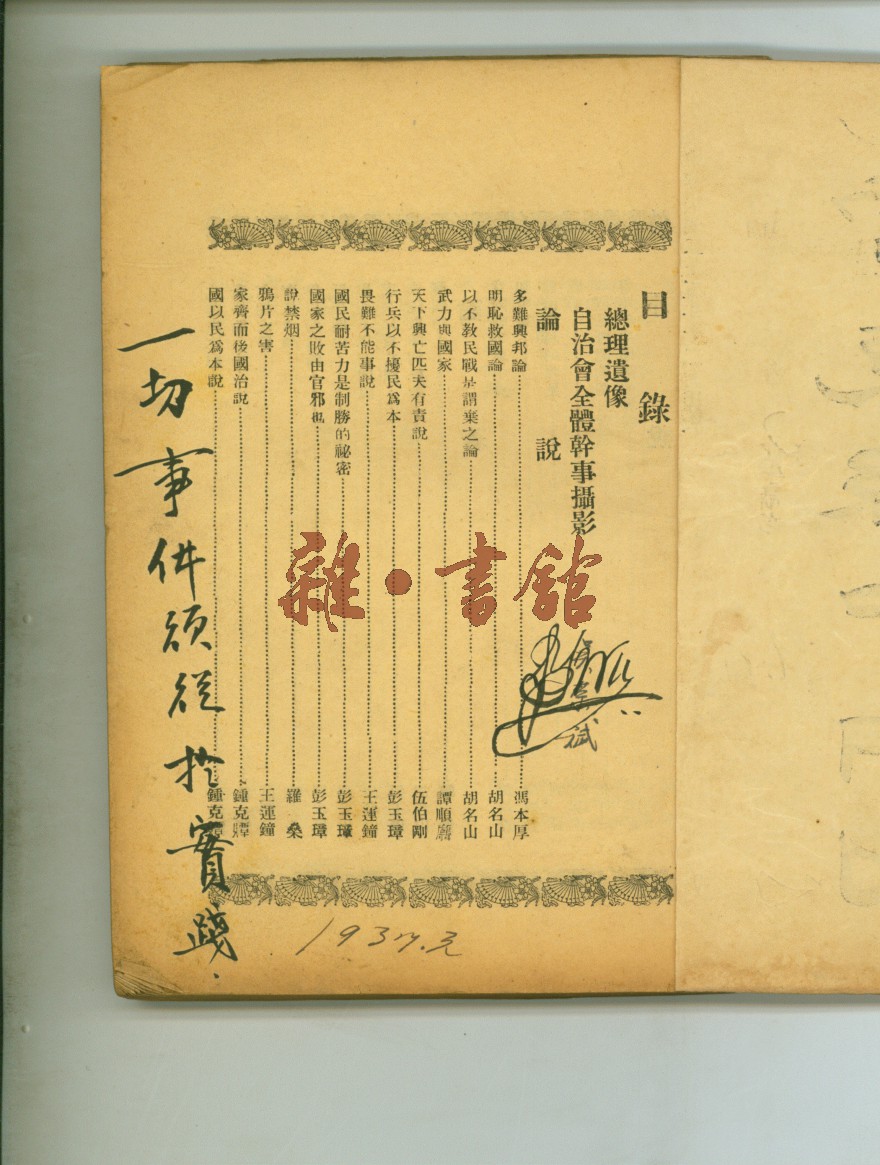 目錄
總理遺像
自治會全體幹事攝影
論說
多難興邦論⋯⋯馮本厚
明恥救國論⋯⋯胡名山
以不教民戰是謂棄之論⋯⋯胡名山
武力與國家⋯⋯譚順
天下興亡匹夫有責說⋯⋯伍伯剛
行兵以不擾民爲本⋯⋯彭玉璋
畏難不能事說⋯⋯王運鐘
國民耐苦力是制勝的祕密⋯⋯彭玉璋
國家之敗由官邪也⋯⋯彭玉璋
說禁烟⋯⋯羅燊
鴉片之害⋯⋯王運鐘
家齊而後國治說⋯⋯鍾克
國以民爲本說⋯⋯鍾克
一切事件須從於實踐.
1937.元
雜·書館